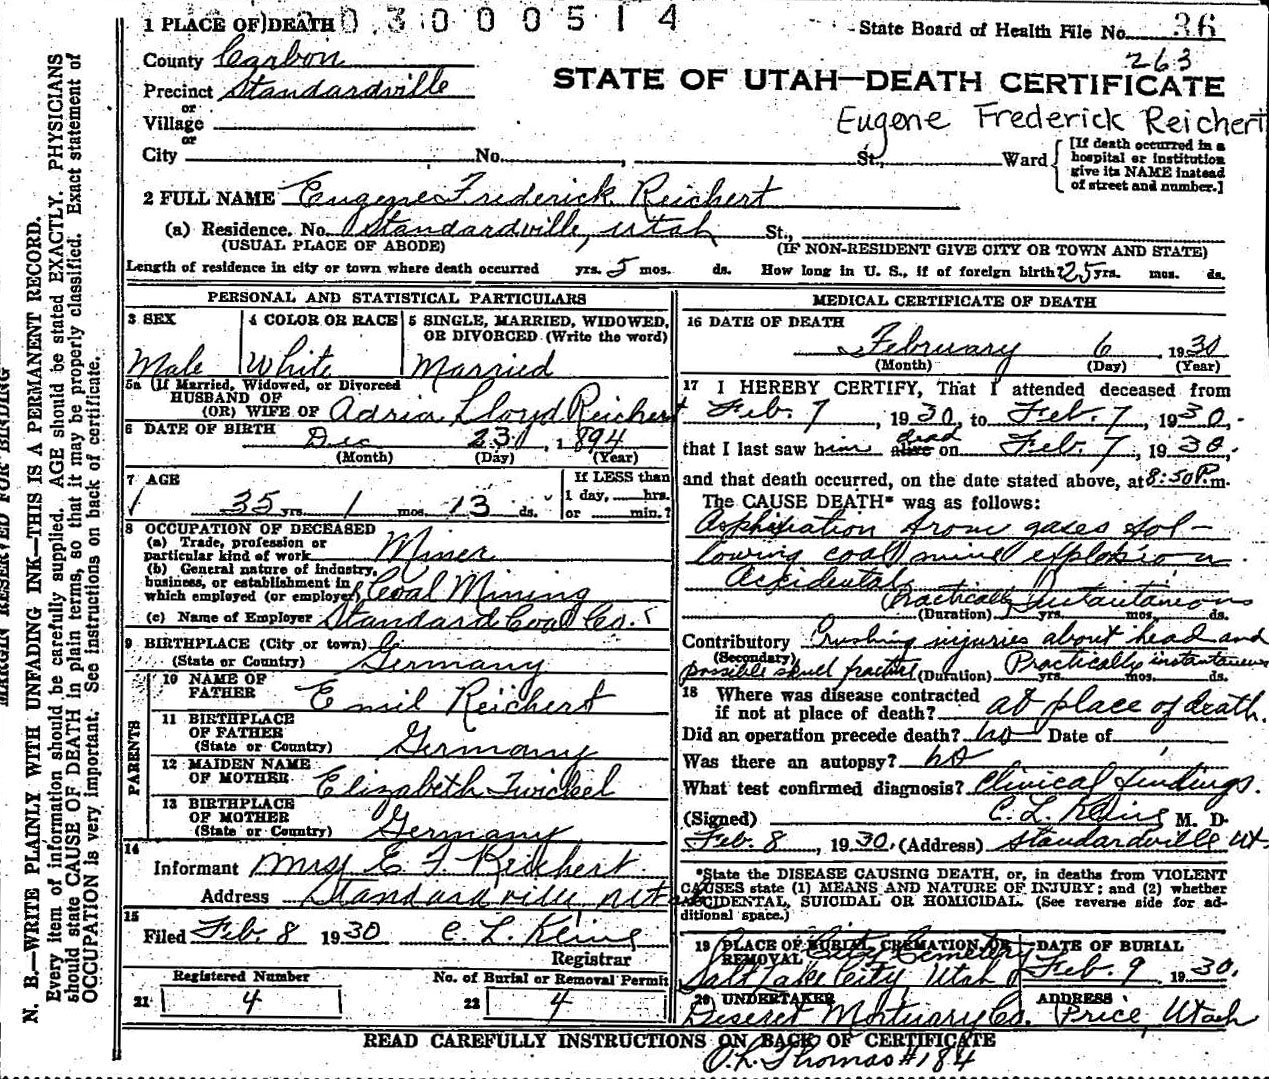 1 PLACE OF DEATH 0 3 0 0 0 5 1 4
State Board of Health File No. 36
263
County Carbon
STATE OF UTAH—DEATH CERTIFICATE
Precinct Standardville
or
Village
Eugene Frederick Reichert
or
City No. , St., Ward
[If death occurred in a
hospital or institution
give its NAME instead
of street and number.]
2 FULL NAME Eugene Frederick Reichert
(a) Residence. No. Standardville, Utah St.,
(USUAL PLACE OF ABODE) (IF NON-RESIDENT GIVE CITY OR TOWN AND STATE)
Length of residence in city or town where death occurred yrs. 5 mos. ds. How long in U. S., if of foreign birth? 25 yrs. mos. ds.
PERSONAL AND STATISTICAL PARTICULARS
3 SEX
Male
4 COLOR OR RACE
White
5 SINGLE, MARRIED, WIDOWED,
OR DIVORCED (Write the word)
Married
5a (If Married, Widowed, or Divorced
HUSBAND OF
(OR) WIFE OF Adria Lloyd Reichert
6 DATE OF BIRTH Dec 23 1894
(Month) (Day) (Year)
7 AGE
35 yrs. 1 mos. 13 ds.
If LESS than
1 day, hrs.
or min.?
8 OCCUPATION OF DECEASED
(a) Trade, profession or
particular kind of work Miner
(b) General nature of industry,
business, or establishment in
which employed (or employer) Coal Mining
(c) Name of Employer Standard Coal Co.
9 BIRTHPLACE (City or town)
(State or Country) Germany
PARENTS
10 NAME OF
FATHER Emil Reichert
11 BIRTHPLACE
OF FATHER
(State or Country) Germany
12 MAIDEN NAME
OF MOTHER Elizabeth Twickel
13 BIRTHPLACE
OF MOTHER
(State or Country) Germany
14
Informant Mrs E F Reichert
Address Standardville Utah
15
Filed Feb. 8 1930 C. L. Kling
Registrar
Registered Number
21 4
No. of Burial or Removal Permit
22 4
MEDICAL CERTIFICATE OF DEATH
16 DATE OF DEATH
February 6 1930
(Month) (Day) (Year)
17 I HEREBY CERTIFY, That I attended deceased from
Feb. 7, 1930, to Feb. 7, 1930,
that I last saw him alive dead on Feb. 7, 1930,
and that death occurred, on the date stated above, at 8:50 P. m.
The CAUSE DEATH* was as follows:
Asphixiation from gases fol-
lowing coal mine explosion
Accidental
Practically instantaneous
(Duration) yrs. mos. ds.
Contributory Crushing injuries about head and
(Secondary)
possible skull fracture (Duration) Practically instantaneous yrs. mos. ds.
18 Where was disease contracted
if not at place of death? at place of death.
Did an operation precede death? no Date of
Was there an autopsy? no
What test confirmed diagnosis? Clinical findings.
(Signed) C. L. Kling M. D.
Feb. 8, 1930, (Address) Standardville Ut
*State the DISEASE CAUSING DEATH, or, in deaths from VIOLENT
CAUSES state (1) MEANS AND NATURE OF INJURY; and (2) whether
ACCIDENTAL, SUICIDAL OR HOMICIDAL. (See reverse side for ad-
ditional space.)
19 PLACE OF BURIAL, CREMATION, OR
REMOVAL City Cemetery
Salt Lake City, Utah
DATE OF BURIAL
Feb. 9 1930.
20 UNDERTAKER
Deseret Mortuary Co.
ADDRESS
Price, Utah
READ CAREFULLY INSTRUCTIONS ON BACK OF CERTIFICATE
O. L. Thomas #184
MARGIN RESERVED FOR BINDING
N. B.—WRITE PLAINLY WITH UNFADING INK—THIS IS A PERMANENT RECORD.
Every item of information should be carefully supplied. AGE should be stated EXACTLY. PHYSICIANS
should state CAUSE OF DEATH in plain terms, so that it may be properly classified. Exact statement of
OCCUPATION is very important. See instructions on back of certificate.